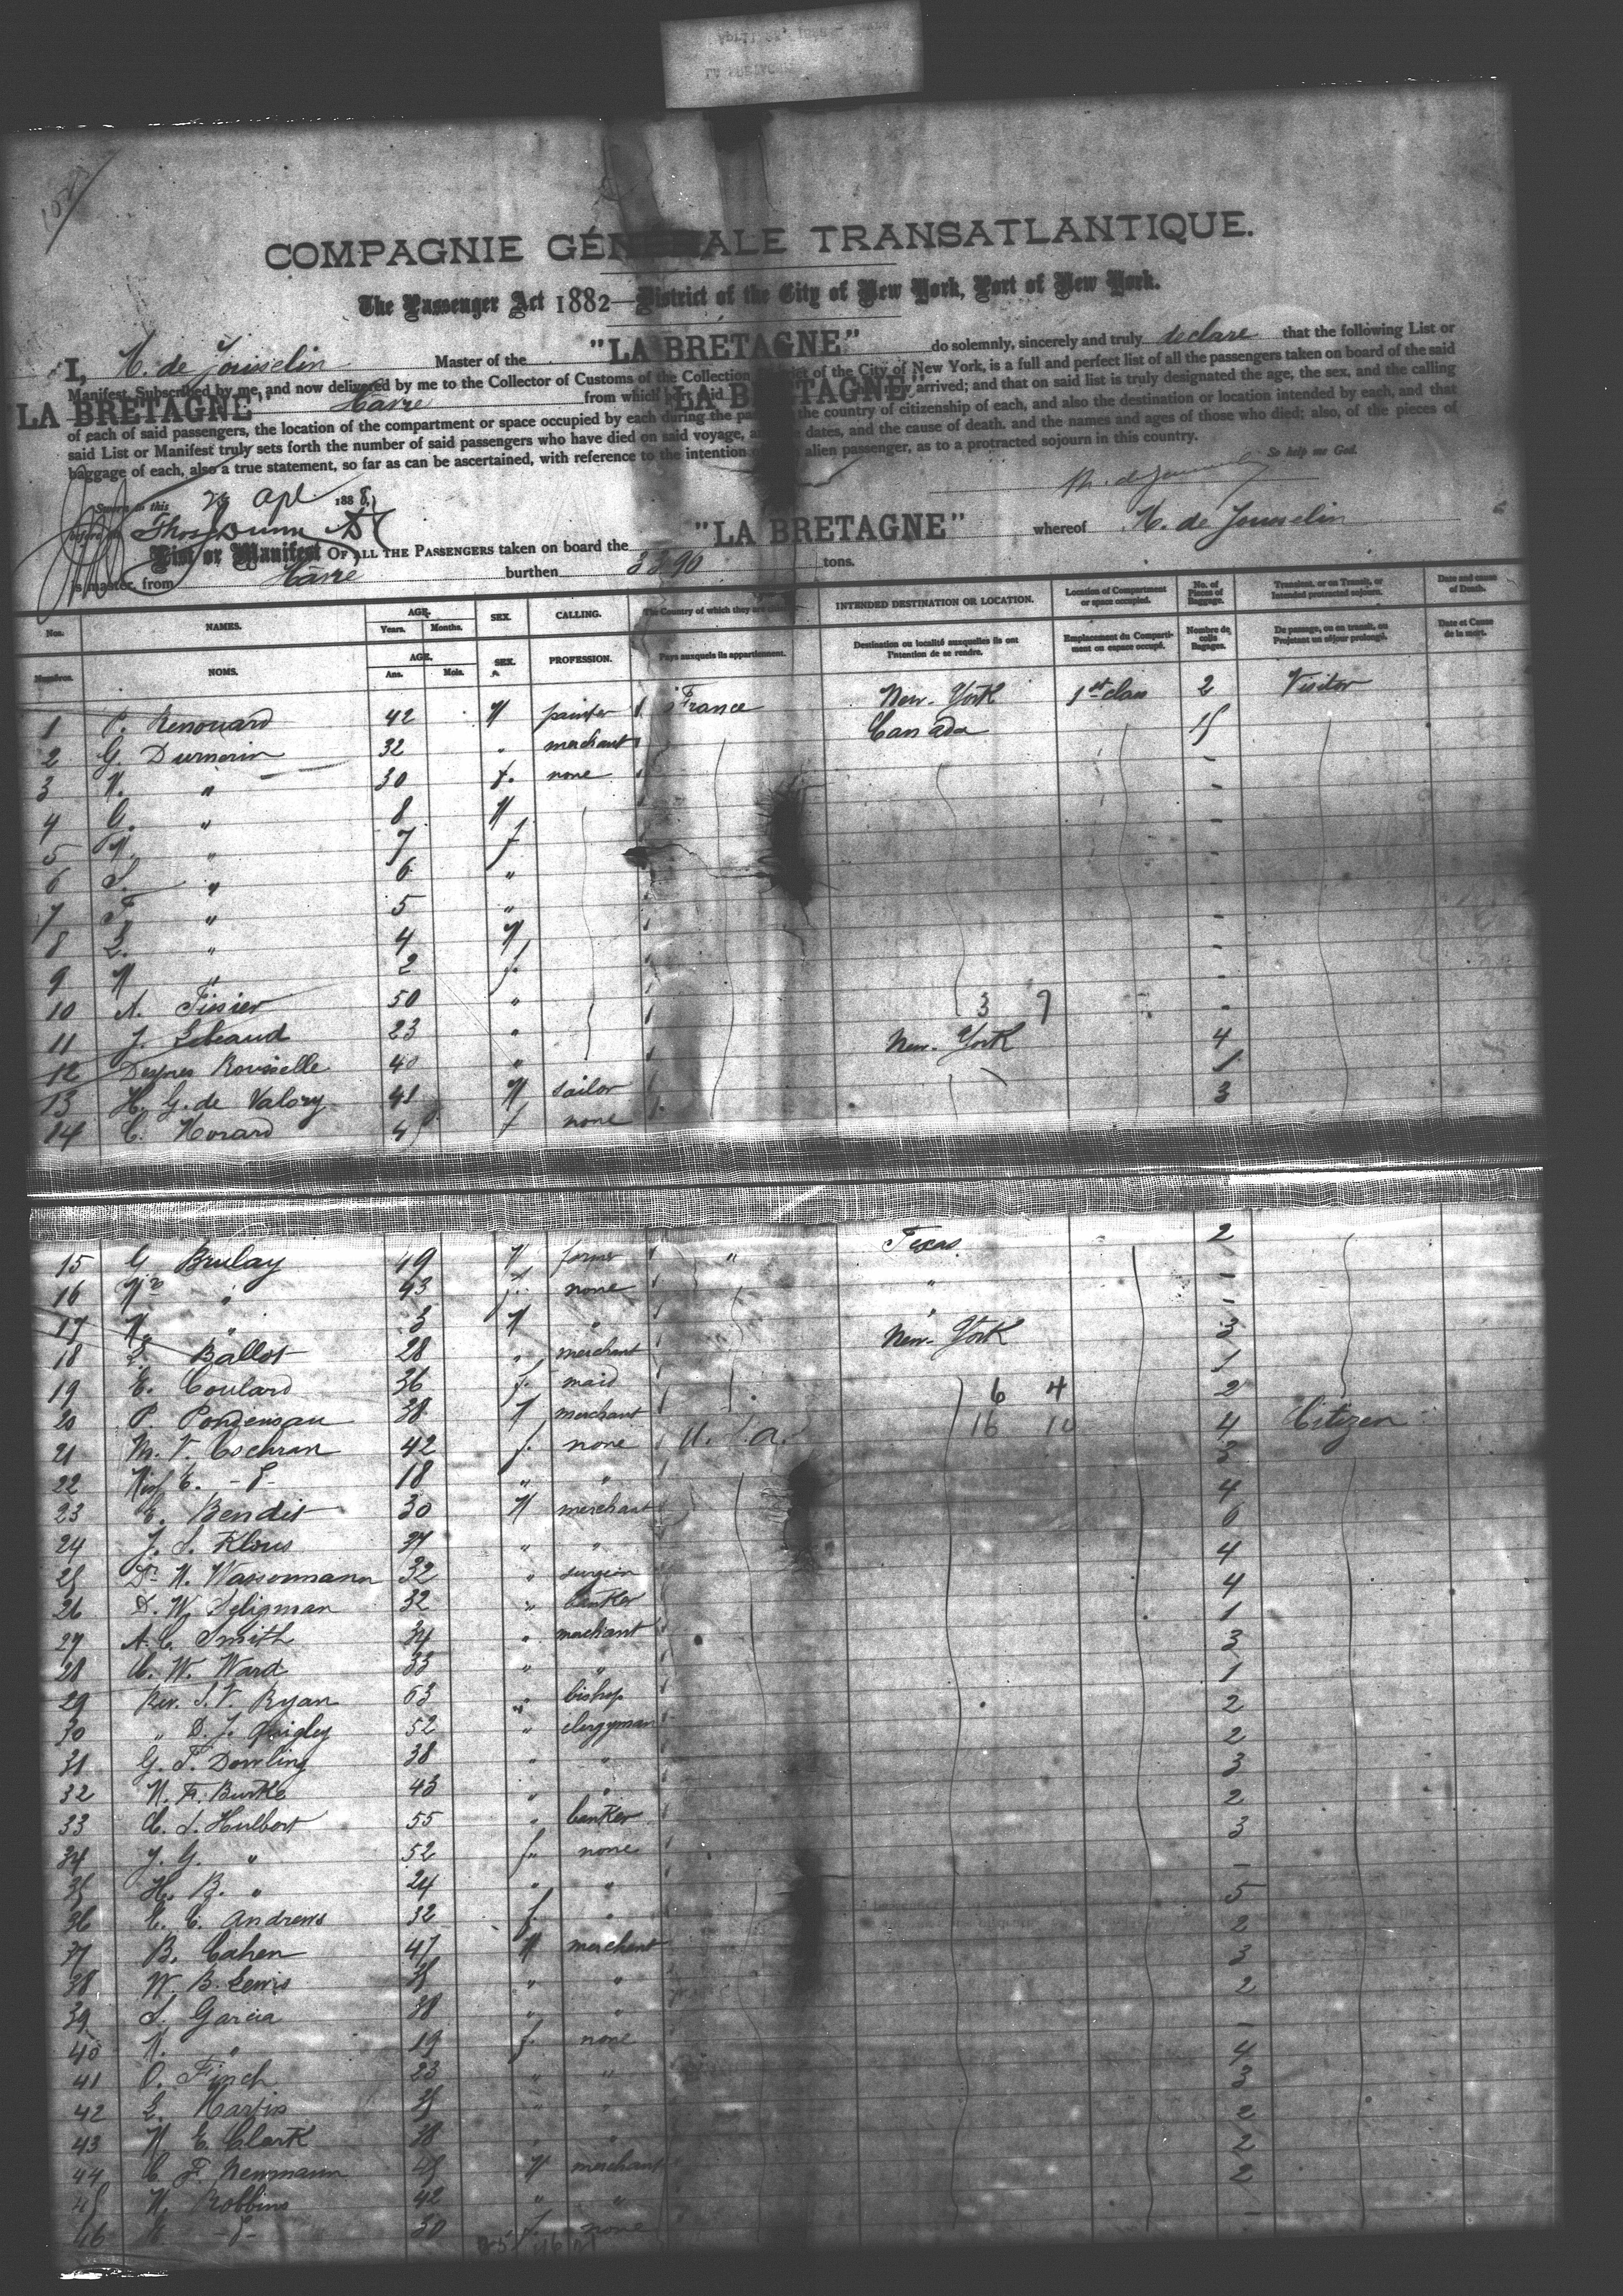 COMPAGNIE GÉNÉRALE TRANSATLANTIQUE.
The Passenger Act 1882—District of the City of New York, Port of New York.
I, M. de Jousselin Master of the "LA BRETAGNE" do solemnly, sincerely and truly declare that the following List or
Manifest, Subscribed by me, and now delivered by me to the Collector of Customs of the Collection District of the City of New York, is a full and perfect list of all the passengers taken on board of the said
"LA BRETAGNE" Havre from which port said "LA BRETAGNE" now arrived; and that on said list is truly designated the age, the sex, and the calling
of each of said passengers, the location of the compartment or space occupied by each during the passage, the country of citizenship of each, and also the destination or location intended by each, and that
said List or Manifest truly sets forth the number of said passengers who have died on said voyage, and the dates, and the cause of death, and the names and ages of those who died; also, of the pieces of
baggage of each, also a true statement, so far as can be ascertained, with reference to the intention of each alien passenger, as to a protracted sojourn in this country.
So help me God.
Sworn to this Apl 1888
before Thos Dunn
List or Manifest OF ALL THE PASSENGERS taken on board the "LA BRETAGNE" whereof M. de Jousselin
is master, from Havre burthen tons.
Nos. NAMES. AGE. Years. Months. SEX. CALLING. The Country of which they are INTENDED DESTINATION OR LOCATION. Location of Compartment or space occupied. No. of Pieces of Baggage. Transient, or on Transit, or Intended protracted sojourn. Date and cause of Death.
Numéros. NOMS. AGE. Ans. Mois. SEX. PROFESSION. Pays auxquels ils appartiennent. Destination ou localité auxquelles ils ont l'intention de se rendre. Emplacement du Compartiment ou espace occupé. Nombre de colis Bagages. De passage, ou en transit, ou Projetant un séjour prolongé. Date et Cause de la mort.
1 P. Renouard 42 M painter France New-York 1st class 2 Visitor
2 G. Dumorin 32 " merchant Canada 15
3 M. " 30 f. none -
4 C. " 8 M -
5 M. " 7 f -
6 S. " 6 " -
7 F. " 5 "
8 L. " 4 M -
9 M " 2 f. -
10 A. Tissier 50 " -
11 J. 23 " 3 9 -
12 Rousselle 40 " New-York 4
13 H. G. de Valory 41 M sailor 1
14 C. Morard f none 3
15 G Brulay 49 M farmer " Texas 2
16 " 43 f. none " -
17 M. " 3 M " " -
18 L. Ballot 28 " merchant New-York 3
19 E. Coulard 36 f. maid 1
20 P. 38 M merchant 6 4 2
21 M. V. Cochran 42 f. none U.S.a. 16 10 4 Citizen
22 Miss E. -d°- 18 " " 3
23 E. Bendit 30 M merchant 4
24 J. S. Klous 37 " " 6
25 Dr. M. Wassermann 32 " surgeon 4
26 D. W. Seligman 32 " banker 4
27 A. C. Smith 34 " merchant 1
28 C. W. Ward 33 " " 3
29 Rev. S. V. Ryan 63 " bishop 1
30 " D. J. Quigley 52 " clergyman 2
31 G. T. Dowling 38 " " 2
32 M. F. Burke 43 " " 3
33 C. S. Hulbert 55 " banker 2
34 J. G. " 52 f. none 3
35 H. B. " 24 " " -
36 E. C. Andrews 32 f. " 5
37 B. Cahen 47 M merchant 2
38 W. B. Lewis 35 " " 3
39 S. Garcia 38 " " 2
40 M. " 19 f. none -
41 O. Finch 23 " " 4
42 L. Martin 35 " " 3
43 M E. Clark 38 " " 2
44 C. F. Newmann 45 M merchant 2
45 M. Robbins 42 " " 2
46 M. -d°- 30 f. none -